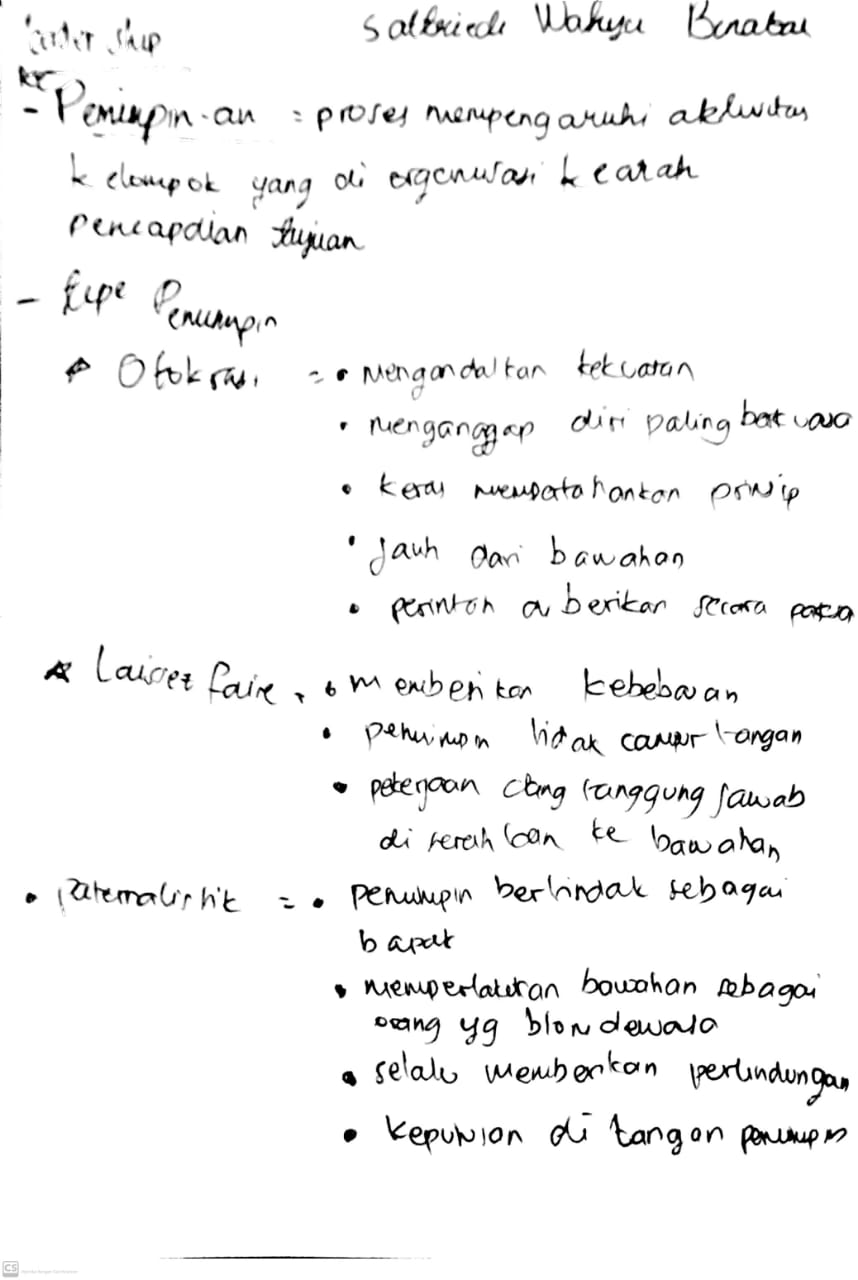 Leadership
Wahyu
Ke
- Pemimpin-an = proses mempengaruhi aktivitas
kelompok yang di organisasi kearah
pencapaian tujuan
- tipe Pemimpin
Otokrasi = • Mengandalkan kekuatan
• menganggap diri paling berkuasa
• keras mempertahankan prinsip
• jauh dari bawahan
• perintah diberikan secara paksa
Laissez faire, • memberikan kebebasan
• pemimpin tidak campur tangan
• pekerjaan dang tanggung jawab
di serahkan ke bawahan
• paternalistik = • pemimpin bertindak sebagai
bapak
• memperlakukan bawahan sebagai
orang yg blom dewasa
• selalu memberikan perlindungan
• keputusan di tangan pemimpin
CS